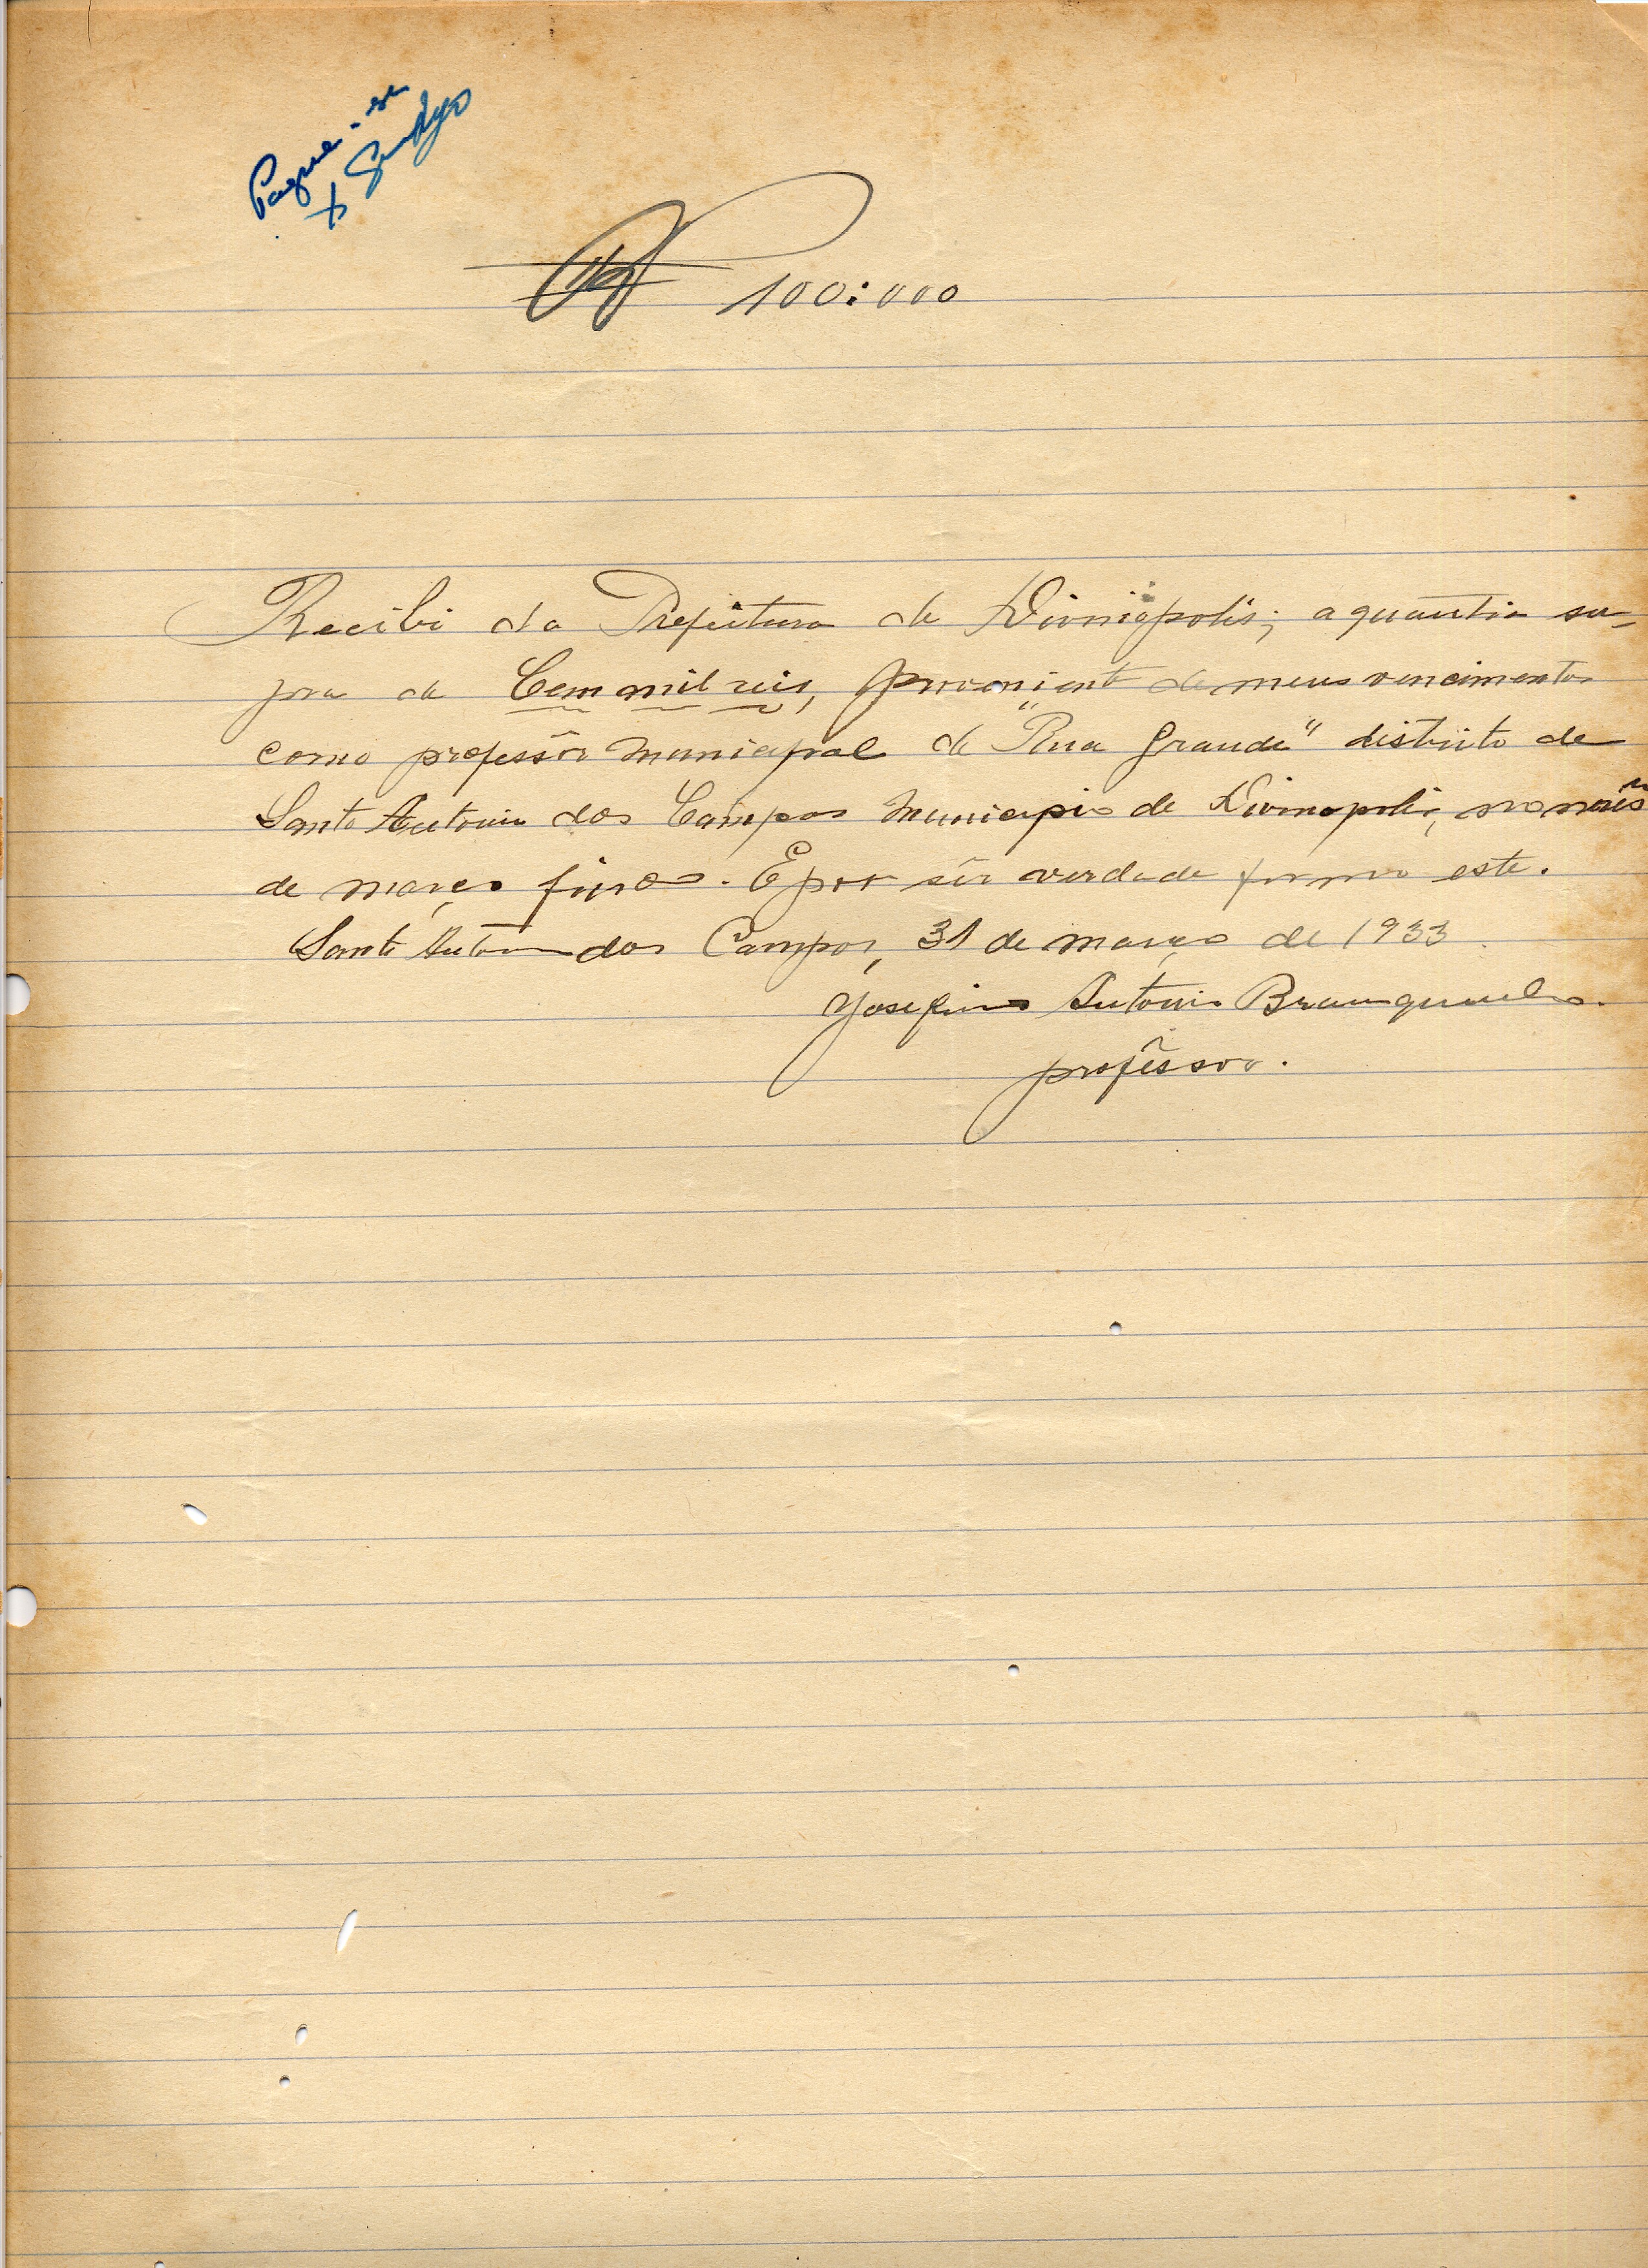 Pague-se
X
100:000
Recibi da Prefeitura de Divniopolis; a quantia su-
pra de Cem mil reis, proveniente de meus vencimentos
como professôr municipal de "Rua Grande" distrito de
Santo Antonio dos Campos Municipio de Divinopolis, no mês
de março findo. E por sêr verdade firmo este.
Santo Antonio dos Campos, 31 de março de 1933
Josefino Antonio
profêssor.